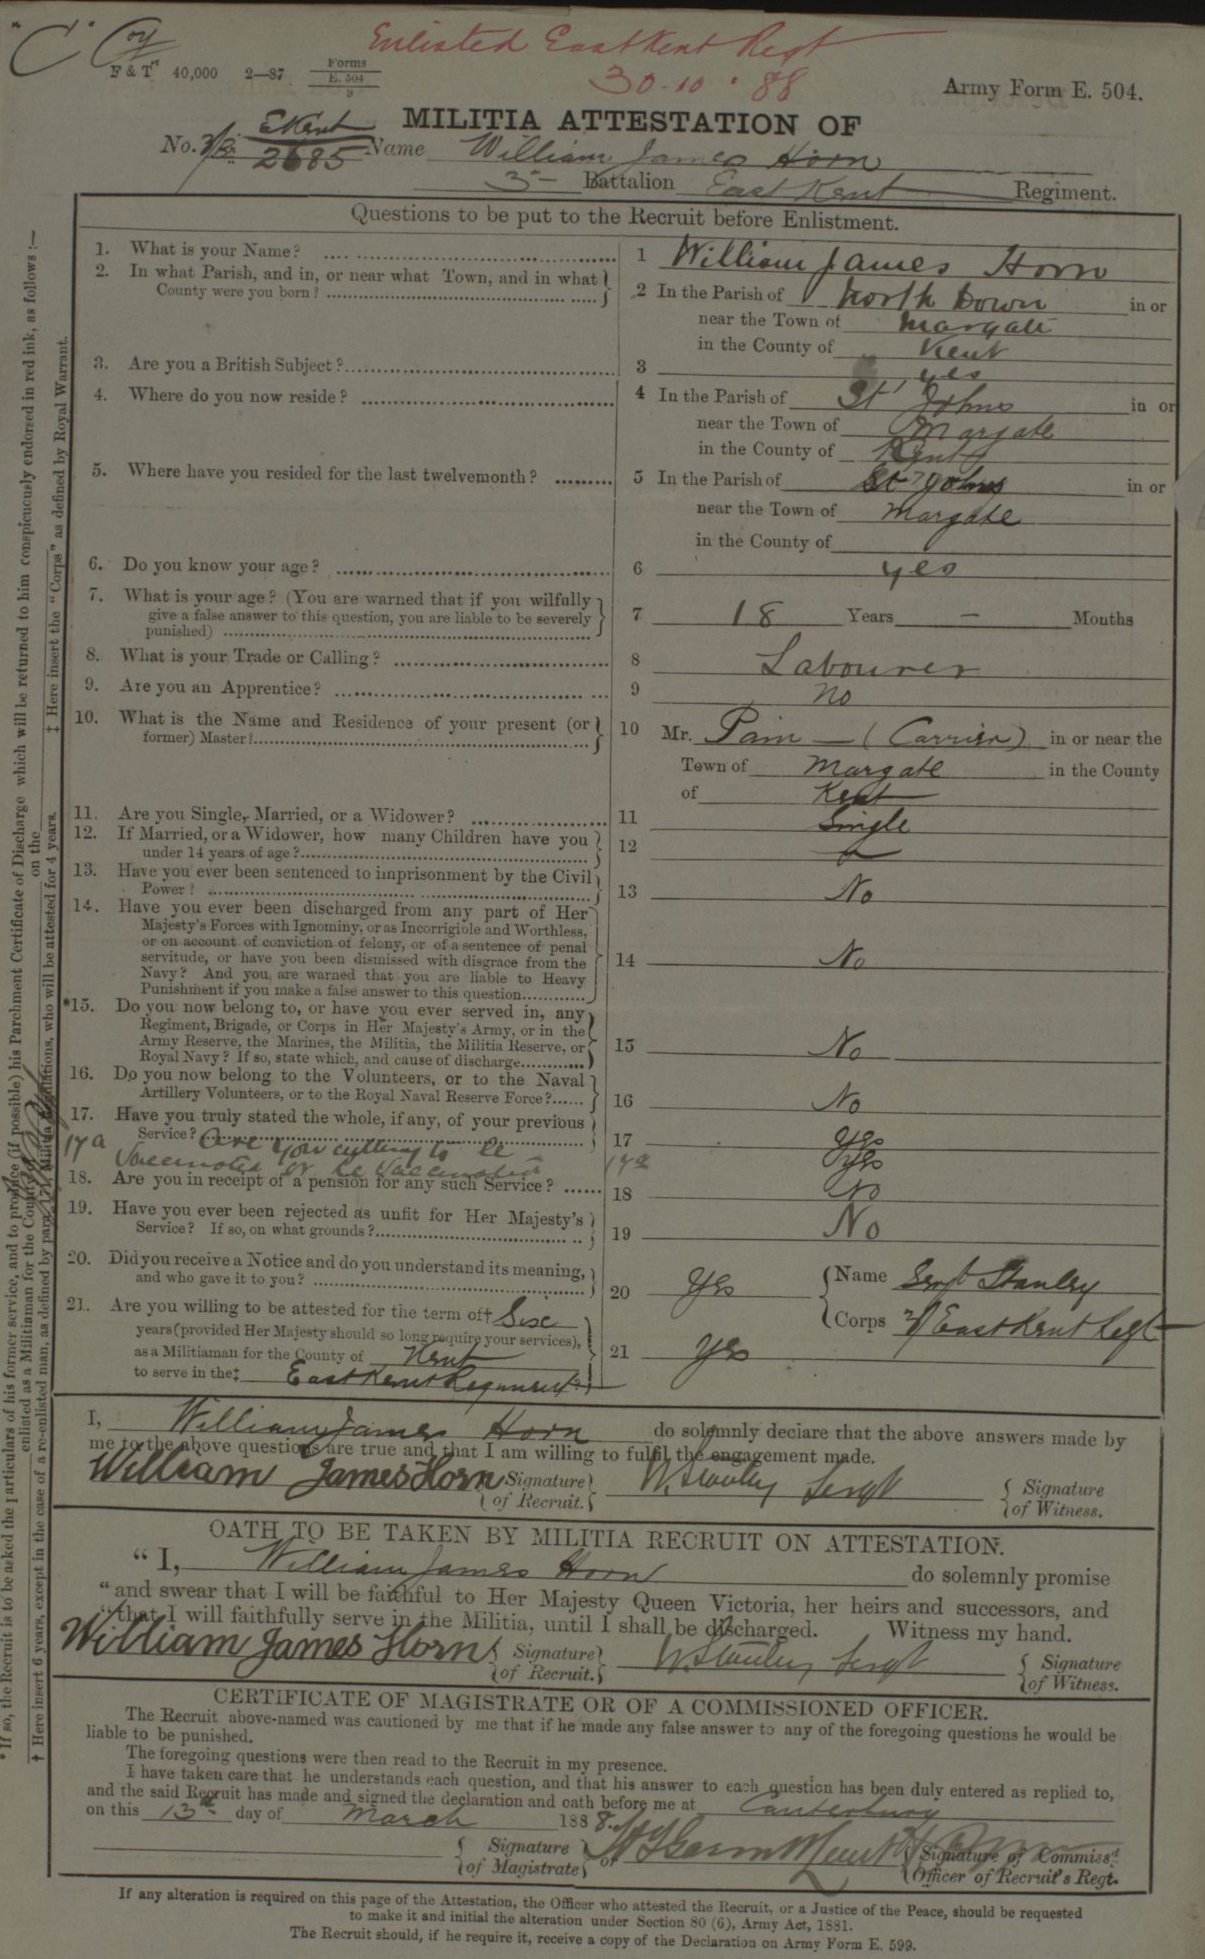 "C" Coy
Enlisted East Kent Regt
30.10.88
F & T 40,000 2—87 Forms E. 504 9
Army Form E. 504.
MILITIA ATTESTATION OF
No. E Kent 2685 Name William James Horn
3 Battalion East Kent Regiment.
Questions to be put to the Recruit before Enlistment.
1. What is your Name? 1 William James Horn
2. In what Parish, and in, or near what Town, and in what
County were you born? 2 In the Parish of North Down in or
near the Town of Margate
in the County of Kent
3. Are you a British Subject? 3 yes
4. Where do you now reside? 4 In the Parish of St Johns in or
near the Town of Margate
in the County of Kent
5. Where have you resided for the last twelvemonth? 5 In the Parish of St Johns in or
near the Town of Margate
in the County of
6. Do you know your age? 6 yes
7. What is your age? (You are warned that if you wilfully
give a false answer to this question, you are liable to be severely
punished) 7 18 Years — Months
8. What is your Trade or Calling? 8 Labourer
9. Are you an Apprentice? 9 No
10. What is the Name and Residence of your present (or
former) Master? 10 Mr. Pain — (Carrier) in or near the
Town of Margate in the County
of Kent
11. Are you Single, Married, or a Widower? 11 Single
12. If Married, or a Widower, how many Children have you
under 14 years of age? 12
13. Have you ever been sentenced to imprisonment by the Civil
Power? 13 No
14. Have you ever been discharged from any part of Her
Majesty's Forces with Ignominy, or as Incorrigible and Worthless,
or on account of conviction of felony, or of a sentence of penal
servitude, or have you been dismissed with disgrace from the
Navy? And you are warned that you are liable to Heavy
Punishment if you make a false answer to this question 14 No
*15. Do you now belong to, or have you ever served in, any
Regiment, Brigade, or Corps in Her Majesty's Army, or in the
Army Reserve, the Marines, the Militia, the Militia Reserve, or
Royal Navy? If so, state which, and cause of discharge 15 No
16. Do you now belong to the Volunteers, or to the Naval
Artillery Volunteers, or to the Royal Naval Reserve Force? 16 No
17. Have you truly stated the whole, if any, of your previous
Service? 17 yes
17a Are you willing to be
vaccinated or re vaccinated 17a yes
18. Are you in receipt of a pension for any such Service? 18 No
19. Have you ever been rejected as unfit for Her Majesty's
Service? If so, on what grounds? 19 No
20. Did you receive a Notice and do you understand its meaning,
and who gave it to you? 20 Yes Name Sergt Stanley
Corps East Kent Regt
21. Are you willing to be attested for the term of† Six
years (provided Her Majesty should so long require your services),
as a Militiaman for the County of Kent 21 yes
to serve in the‡ East Kent Regiment
I, William James Horn do solemnly declare that the above answers made by
me to the above questions are true and that I am willing to fulfil the engagement made.
William James Horn Signature of Recruit. W. Stanley Sergt Signature of Witness.
OATH TO BE TAKEN BY MILITIA RECRUIT ON ATTESTATION.
"I, William James Horn do solemnly promise
"and swear that I will be faithful to Her Majesty Queen Victoria, her heirs and successors, and
"that I will faithfully serve in the Militia, until I shall be discharged. Witness my hand.
William James Horn Signature of Recruit. W. Stanley Sergt Signature of Witness.
CERTIFICATE OF MAGISTRATE OR OF A COMMISSIONED OFFICER.
The Recruit above-named was cautioned by me that if he made any false answer to any of the foregoing questions he would be
liable to be punished.
The foregoing questions were then read to the Recruit in my presence.
I have taken care that he understands each question, and that his answer to each question has been duly entered as replied to,
and the said Recruit has made and signed the declaration and oath before me at Canterbury
on this 13th day of March 1888.
Signature of Magistrate or Signature of Commissd. Officer of Recruit's Regt.
If any alteration is required on this page of the Attestation, the Officer who attested the Recruit, or a Justice of the Peace, should be requested
to make it and initial the alteration under Section 80 (6), Army Act, 1881.
The Recruit should, if he require it, receive a copy of the Declaration on Army Form E. 599.
* If so, the Recruit is to be asked the particulars of his former service, and to produce (if possible) his Parchment Certificate of Discharge which will be returned to him conspicuously endorsed in red ink, as follows :—
enlisted as a Militiaman for the County of on the
† Here insert 6 years, except in the case of a re-enlisted man, as defined by para. Militia Regulations, who will be attested for 4 years.
‡ Here insert the "Corps" as defined by Royal Warrant.